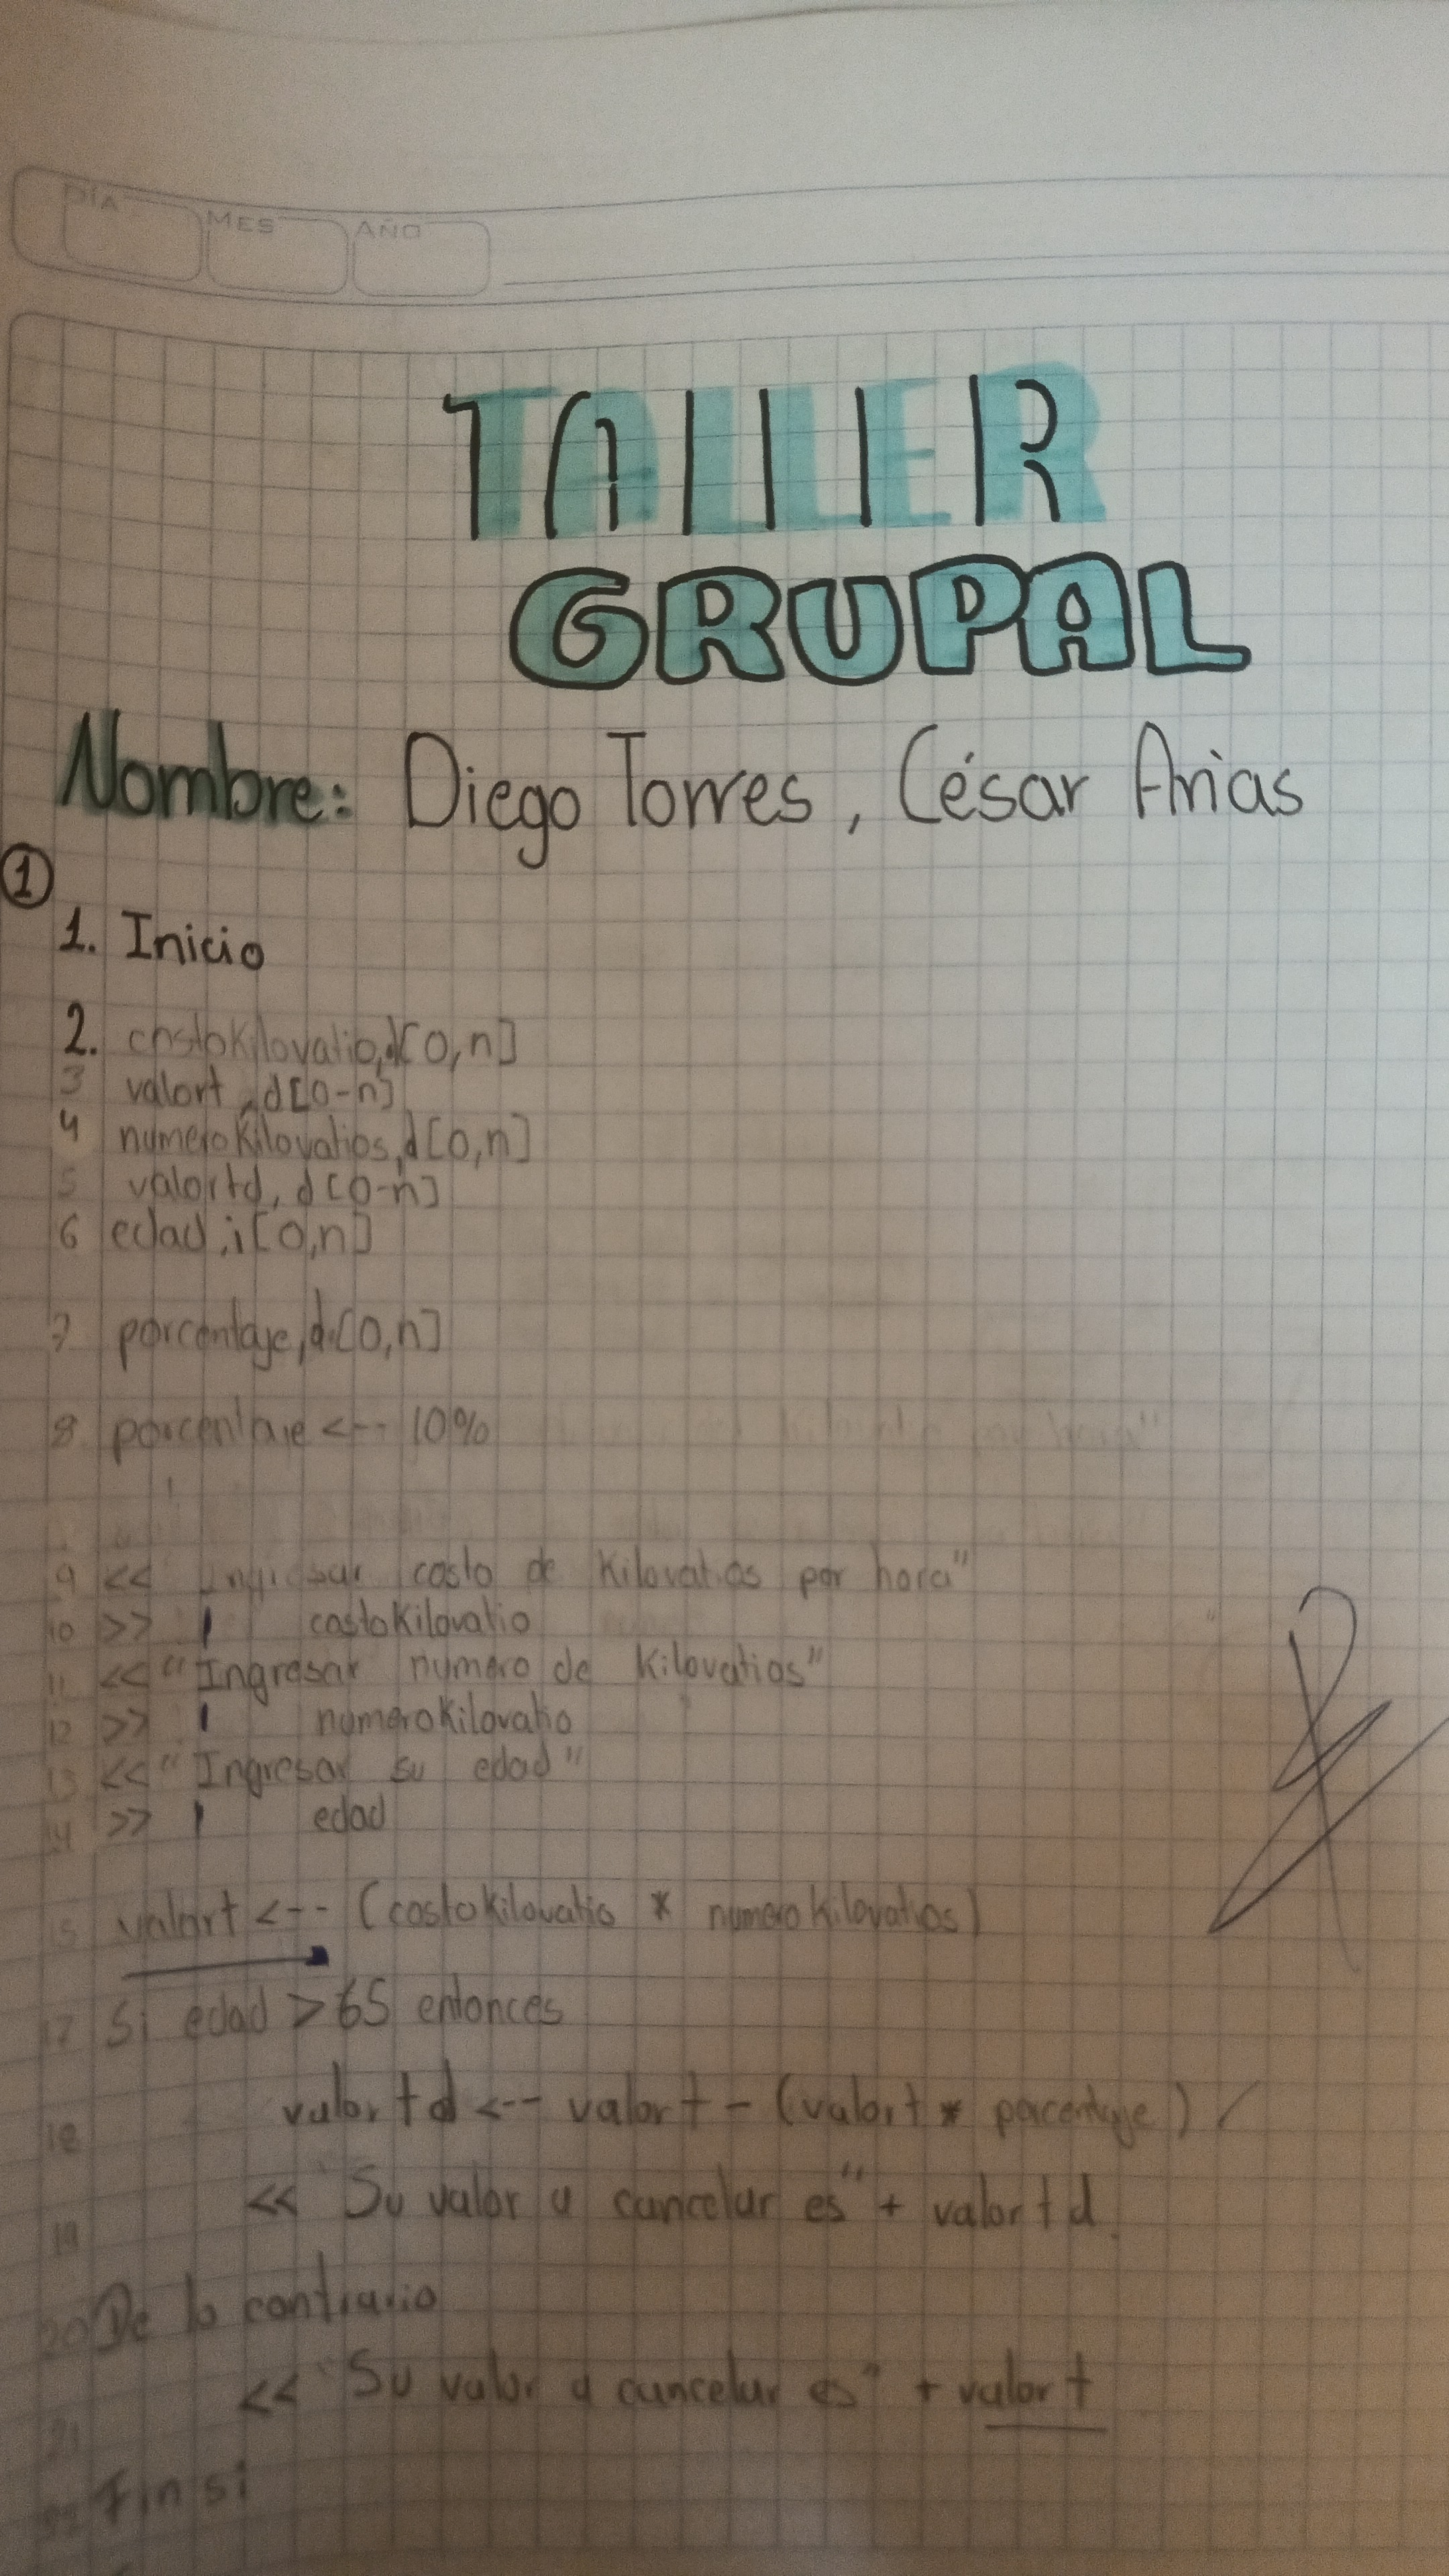 DÍA MES AÑO
TALLER
GRUPAL
Nombre: Diego Torres, César Arias
①
1. Inicio
2. costoKilovatio,d[0,n]
3 valort, d[0-n]
4 numeroKilovatios,d[0,n]
5 valortd, d[0-n]
6 edad,i[0,n]
7 porcentaje,d[0,n]
8 porcentaje <-- 10%
9 << "Ingresar costo de Kilovatios por hora"
10 >> costoKilovatio
11 << "Ingresar numero de Kilovatios"
12 >> numeroKilovatio
13 << "Ingresar su edad"
14 >> edad
15 valort <-- (costoKilovatio * numeroKilovatios)
17 Si edad > 65 entonces
18 valortd <-- valort - (valort * porcentaje)
19 << "Su valor a cancelar es" + valortd
20 De lo contrario
21 << "Su valor a cancelar es" + valort
22 Fin si